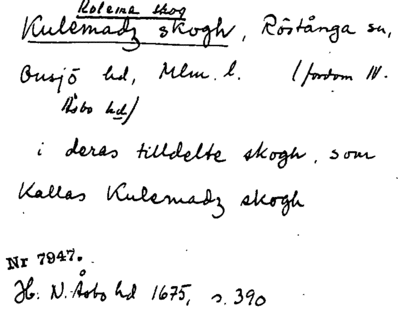 Rolema skog
Kulemadz skogh, Röstånga sn,
Onsjö hd, Mlm. l. (fordom N.
Åsbo hd)
i deras tilldelte skogh, som
Kallas Kulemadz skogh
Nr 7947.
Jb. N. Åsbo hd 1675, s. 390